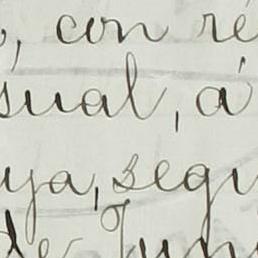 , con ré
sual, á
ya, segu
de Juni